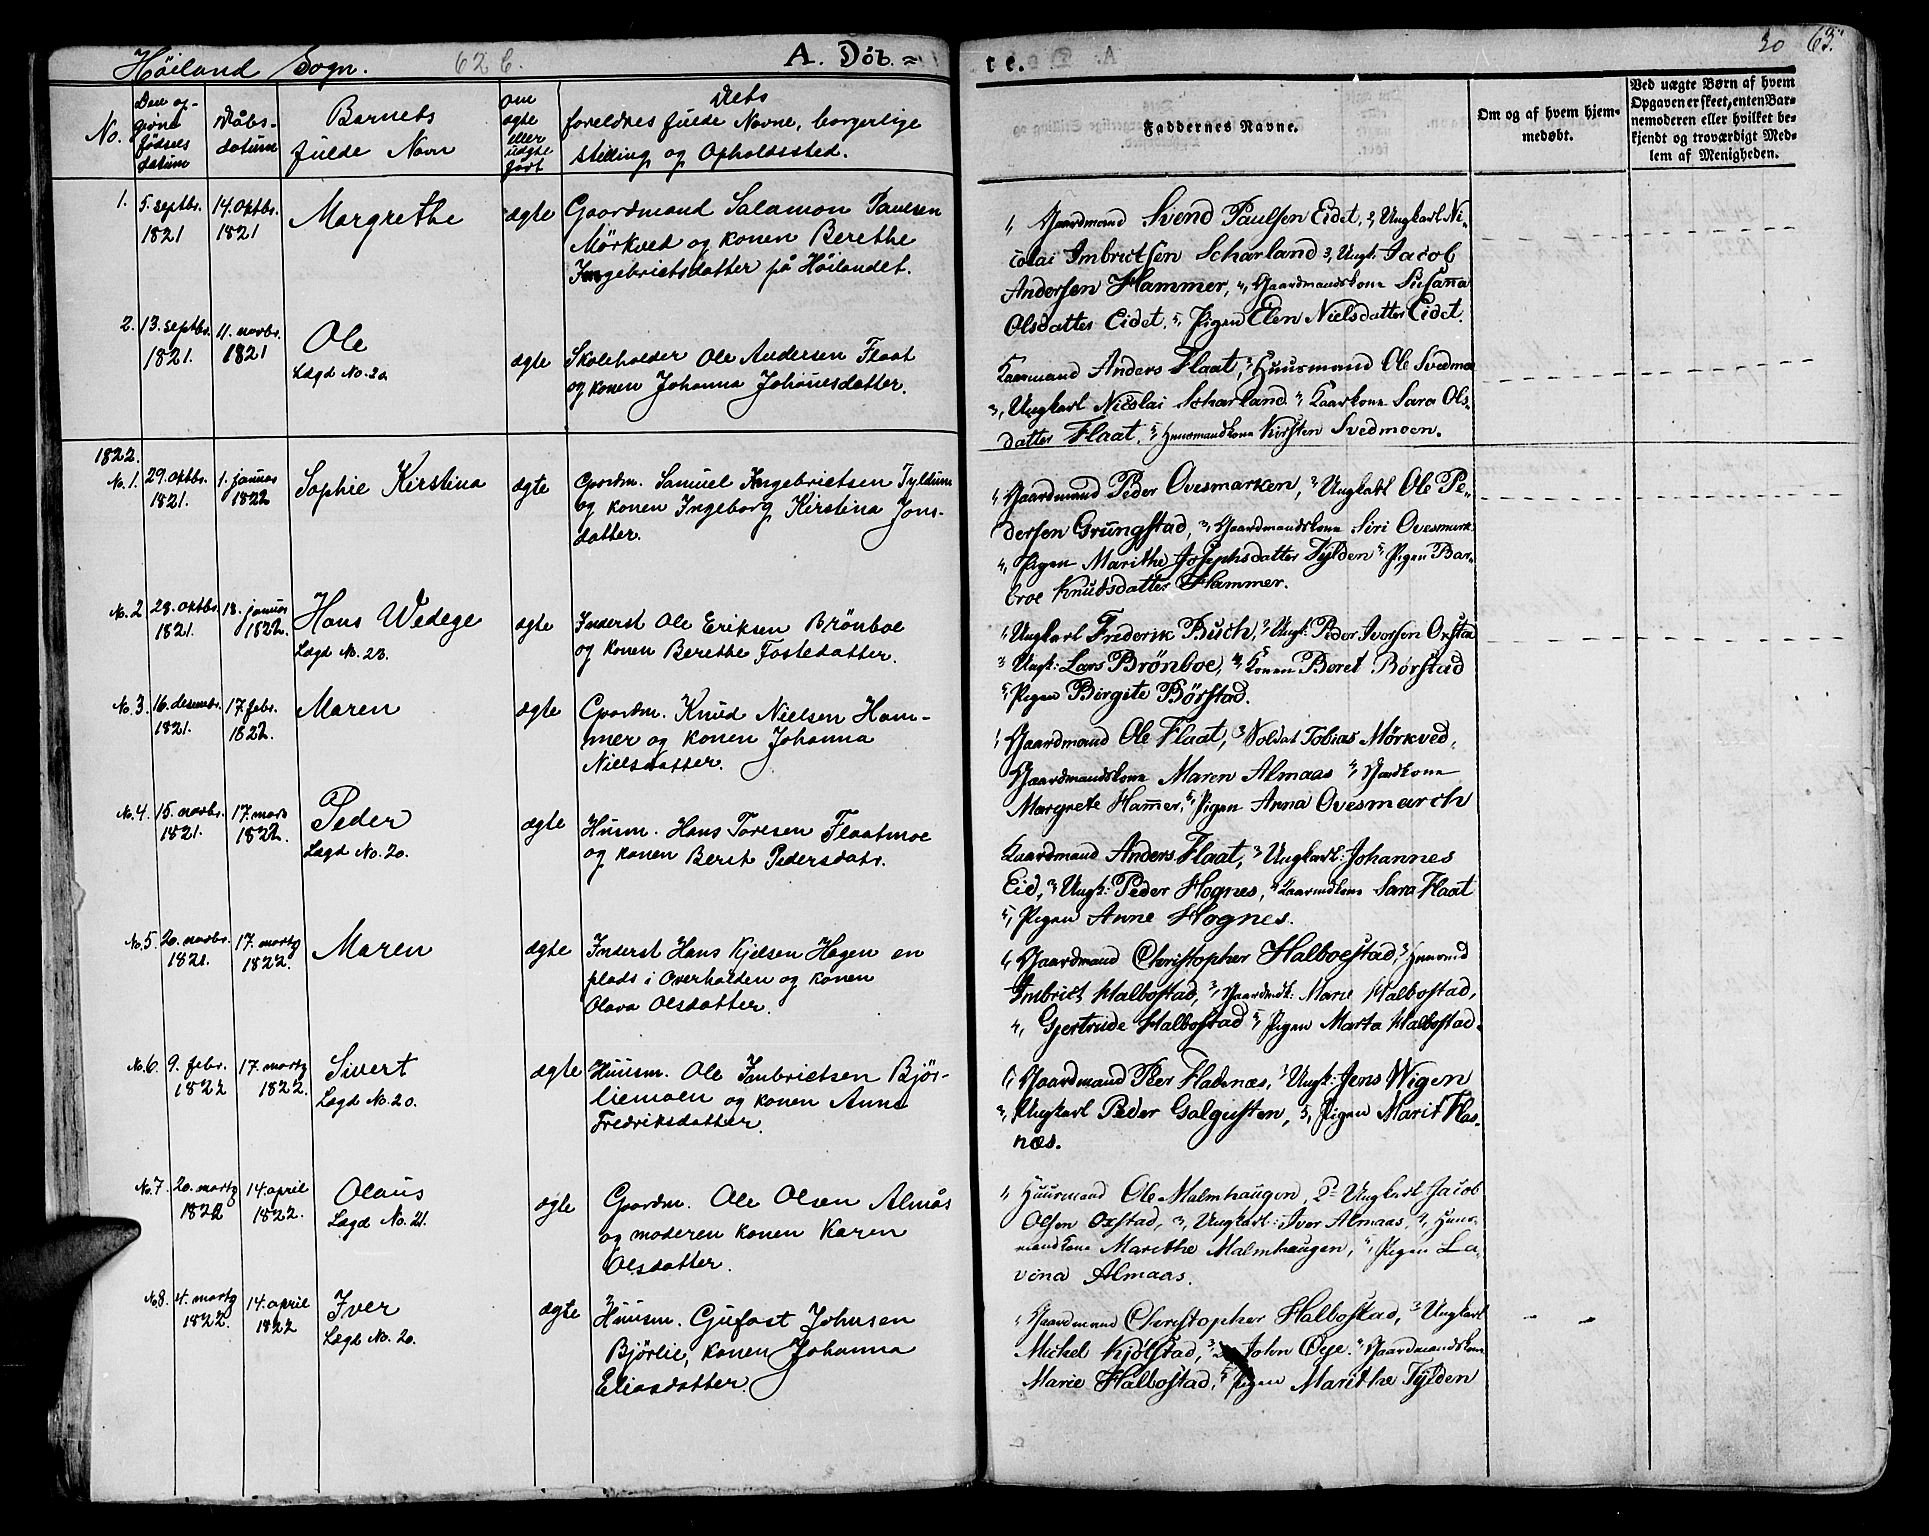 Höiland Sogn. 62 b. A. Döb- =
No. Den op-
givne
födsels
datum
Dåbs-
datum
Barnets
fulde Navn
om
ægte
eller
uægte
født
Dets
foreldres fulde Navne, borgerlige
stilling og Opholdssted.
1. 5. septbr. 14. oktbr. Margrethe ægte Gaardmand Salamon Paulsen
1821 1821 Mörkved og konen Berethe
Ingebrietsdatter på Höilandet.
2. 13. septbr. 11. novbr. Ole ægte Skoleholder Ole Andersen Flaat
1821. 1821 Lægd No. 20. og konen Johanna Johanesdatter.
1822.
No. 1. 29. oktbr. 1. januar Sophie Kirstina ægte Gaardm. Samuel Ingebrietsen Tyldum
1821. 1822 og konen Ingeborg Kirstina Jons-
datter.
No. 2. 28. oktbr. 18. januar Hans Wedege ægte Inderst Ole Eriksen Brönboe
1821. 1822. Lægd No. 23. og konen Berethe Fostedatter.
No. 3. 16. desembr. 17. febr. Maren ægte Gaardm. Knud Nielsen Ham-
1821. 1822. mer og konen Johanna
Nielsdatter.
No. 4. 15. novbr. 17. mars Peder ægte Husm. Hans Toresen Flaatmoe
1821. 1822. Lægd No. 20. og konen Berit Pedersdatr.
No. 5. 20. novbr. 17. martz Maren ægte Inderst Hans Kjelsen Hagen en
1821. 1822. plads i Overhalden og konen
Olava Olsdatter.
No. 6. 9. febr. 17. martz Sivert ægte Huusm. Ole Imbrietsen Björ-
1822 1822. Lægd No. 20. liemoen og konen Anne
Fredriksdatter.
No. 7. 20. martz 14. april Olaus ægte Gaardm. Ole Olsen Almås
1822 1822. Lægd No. 21. og moderen konen Karen
Olsdatter.
No. 8. 4. martz 14. april Iver ægte Huusm. Gufast Johnsen
1822. 1822 Lægd No. 20. Bjørlie, konen Johanna
Eliasdatter.
te. 30 63.
Faddernes Navne.
Om og af hvem hjem-
medøbt.
Ved uægte Børn af hvem
Opgaven er skeet, enten Bar-
nemoderen eller hvilket be-
kjendt og troværdigt Med-
lem af Menigheden.
1, Gaardmand Svend Paulsen Eidet, 2, Ungkarl Ni-
colai Imbrictsen Scharland 3, Ungk: Jacob
Andersen Hammer, 4, Gaardmandskone Susana
Olsdatter Eidet, 5, Pigen Elen Nielsdatter Eidet.
Kaarmand Anders Flaat, 2, Huusmand Ole Svedmoe
3, Ungkarl Nicolai Scharland 4, Kaarkone Sara Ols-
datter Flaat, 5, Huusmandkone Kirsten Svedmoen.
1, Gaardmand Peder Ovesmarken, 2, Ungkarl Ole Pe-
dersen Grüngstad, 3, Gaardmandskone Siri Ovesmark
4, Pigen Marithe Josephsdatter Tylden 5, Pigen Bar-
broe Knudsdatter Hammer.
1, Ungkarl Frederik Busch, 2, Ungk: Peder Iversen Oxstad
3, Ungk: Lars Brönboe, 4, Konen Beret Børstad
5, Pigen Birgite Børstad.
1, Gaardmand Ole Flaat, 2, Soldat Tobias Mørkved,
Gaardmandskone Maren Almaas 4, Gaardkone
Margrete Hammer, 5, Pigen Anna Ovesmarch
Kaardmand Anders Flaat, 2, Ungkarl: Johannes
Eid, 3, Ungk: Peder Hognes, 4, Kaarmdkone Sara Flaat
5, Pigen Anne Hognes.
1, Gaardmand Christopher Halboestad, 2, Huusmd
Imbrict Halbostad, 3, Gaardmdk: Marie Halbostad,
4, Gjertrude Halbostad 5, Pigen Marta Halbostad.
1, Gaardmand Peer Fladenæs, 2, Ungk: Jens Wigen
3, Ungkarl Peder Galgusten, 5, Pigen Marit Flas-
næs.
1, Huusmand Ole Malmhaugen, 2, Ungkarl Jacob
Olsen Oxstad, 3, Ungkarl: Iver Almaas, 4, Huus-
mandkone Marithe Malmhaugen, 5, Pigen La-
vina Almaas.
1, Gaardmand Christopher Halbostad, 2, Ungkarl
Michel Kjölstad, 3, John Öye. 4, Gaardmandskone
Marie Halbostad, 5, Pigen Marithe Tylden